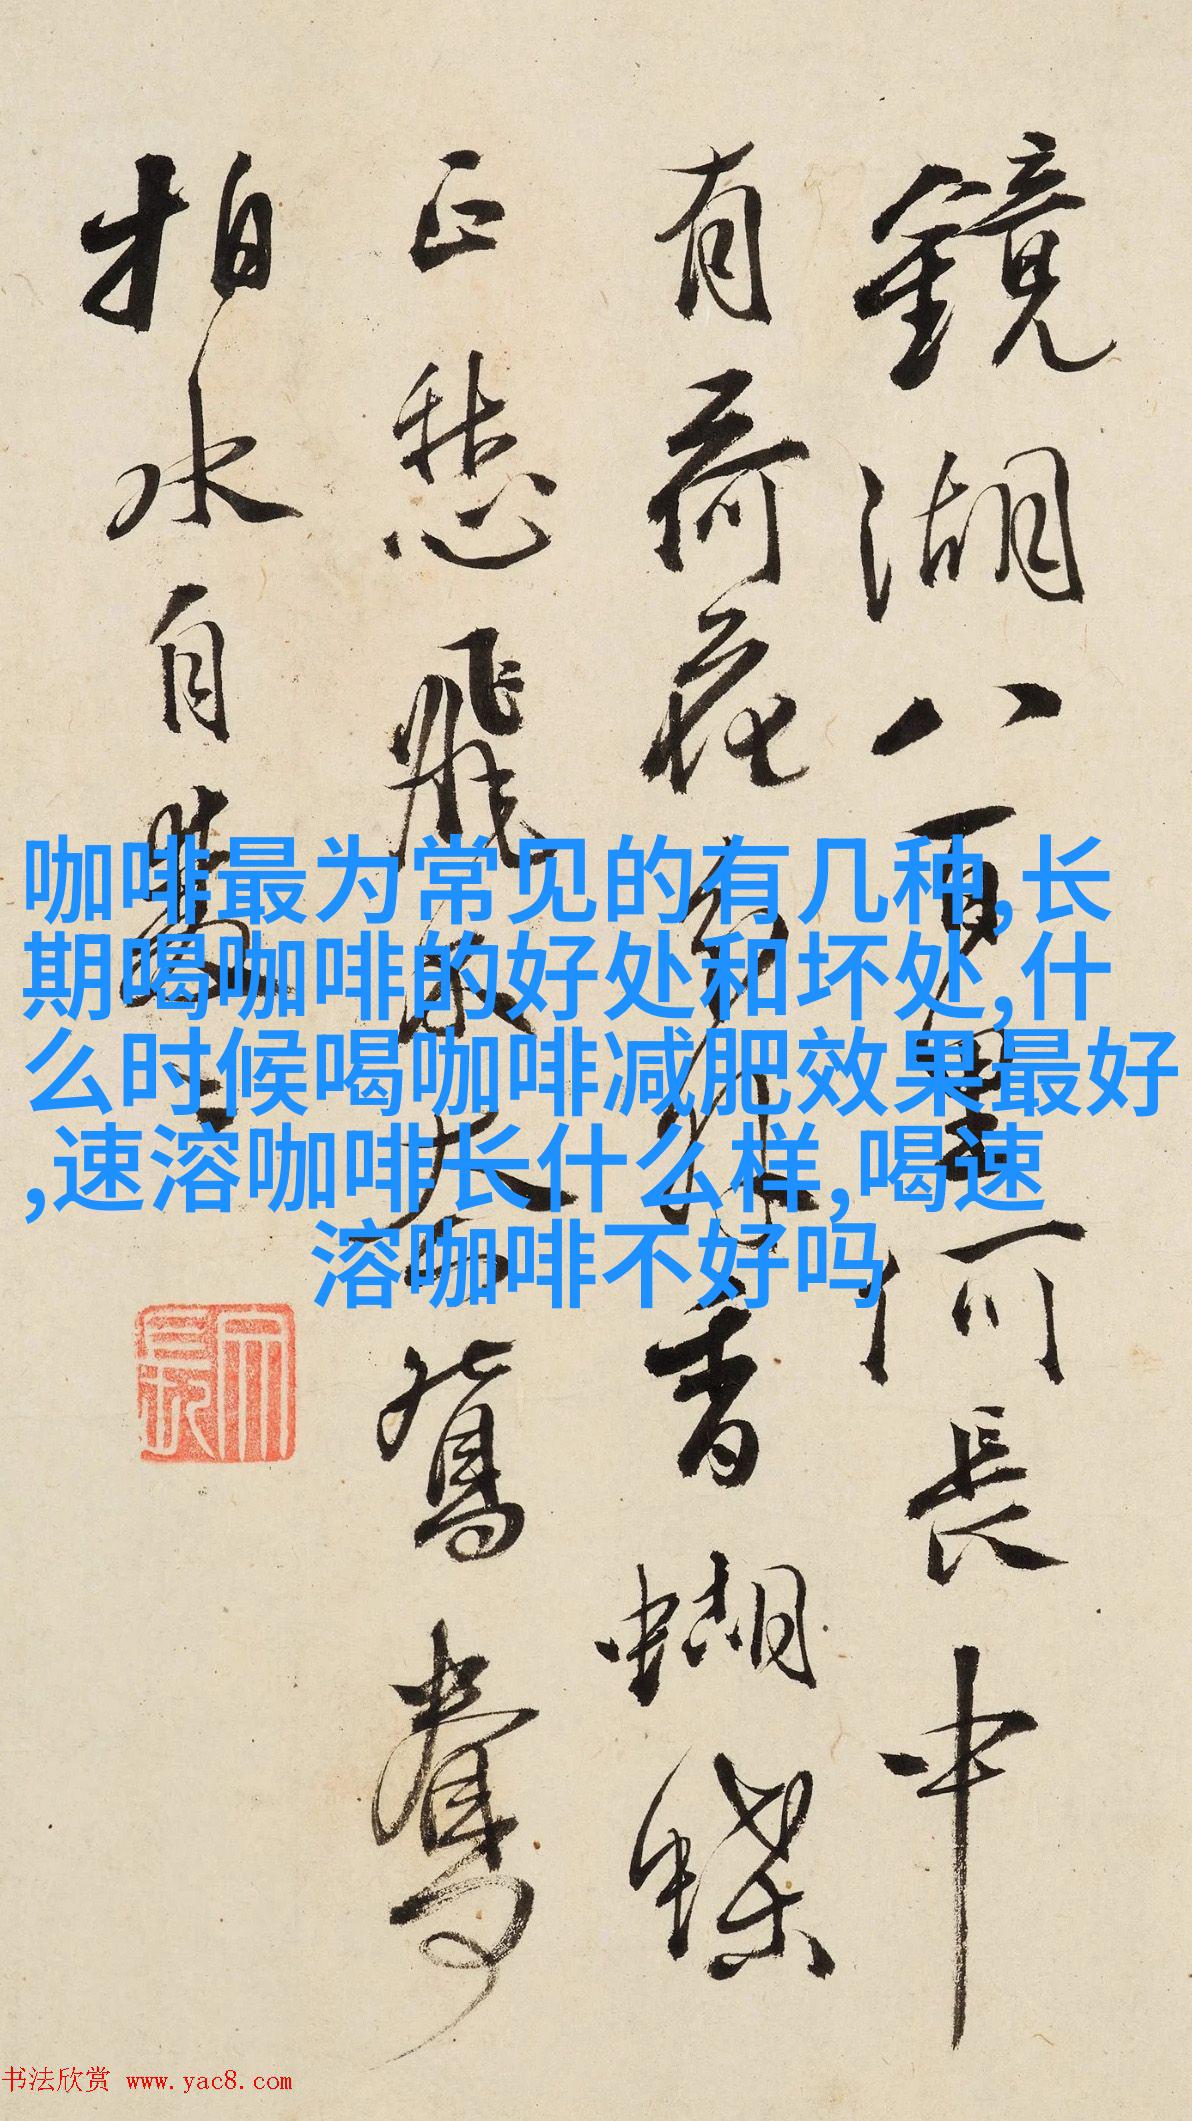 鏡湖八百里何長中
有荷花分外香蝴蝶
正愁飛不過鴛鴦
拍水自雙
咖啡最为常见的有几种,长
期喝咖啡的好处和坏处,什
么时候喝咖啡减肥效果最好
,速溶咖啡长什么样,喝速
溶咖啡不好吗
书法欣赏 www.yac8.com